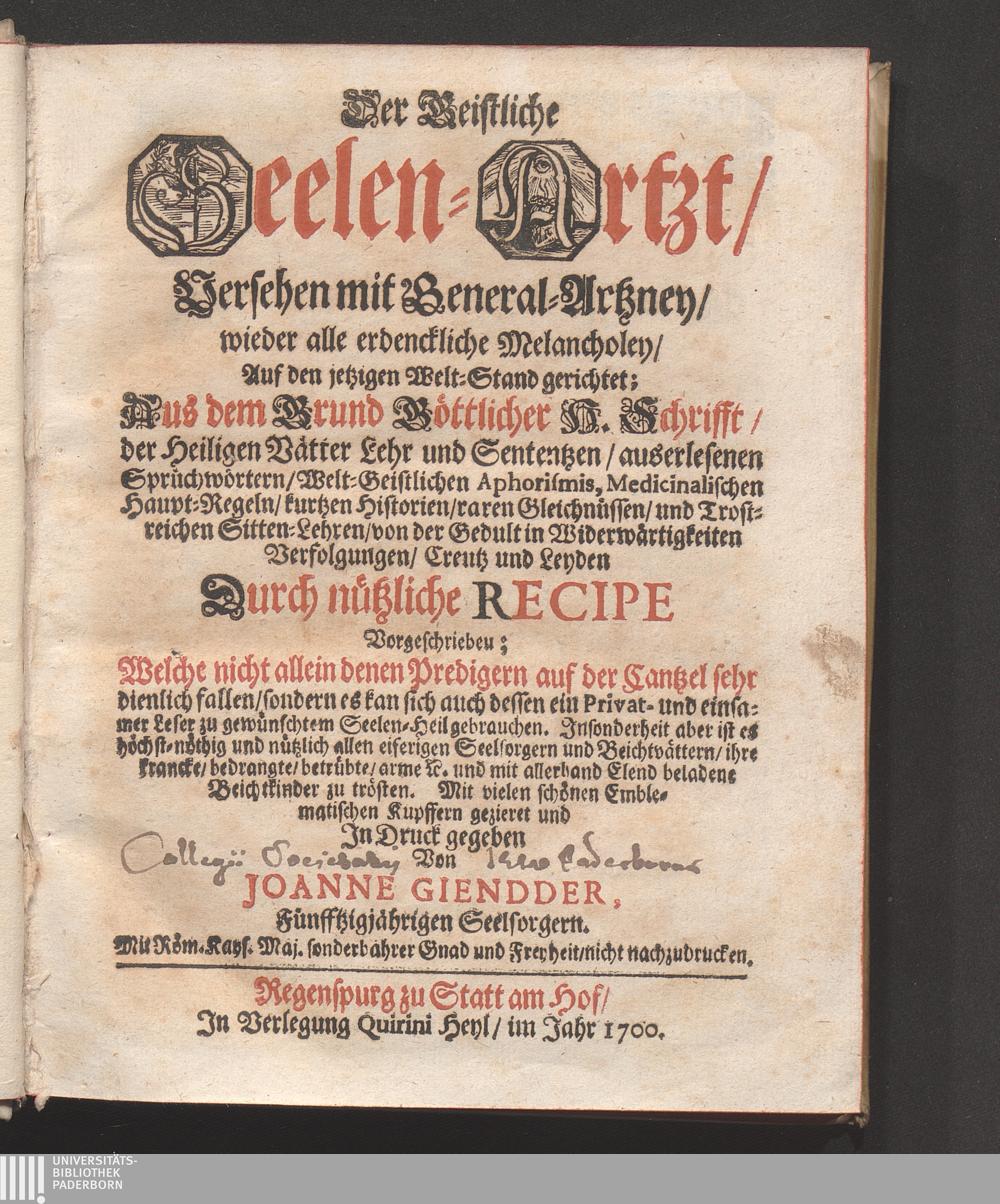 Der Geistliche
Seelen-Artzt/
Versehen mit General-Artzney/
wieder alle erdenckliche Melancholey/
Auf den jetzigen Welt-Stand gerichtet;
Aus dem Grund Göttlicher H. Schrifft/
der Heiligen Vätter Lehr und Sententzen/ auserlesenen
Sprüchwörtern/ Welt-Geistlichen Aphorismis, Medicinalischen
Haupt-Regeln/ kurtzen Historien/ raren Gleichnüssen/ und Trost-
reichen Sitten-Lehren/ von der Gedult in Widerwärtigkeiten
Verfolgungen/ Creutz und Leyden
Durch nützliche RECIPE
Vorgeschrieben;
Welche nicht allein denen Predigern auf der Cantzel sehr
dienlich fallen/ sondern es kan sich auch dessen ein Privat- und einsa-
mer Leser zu gewünschtem Seelen-Heil gebrauchen. Insonderheit aber ist es
höchst-nöthig und nützlich allen eiferigen Seelsorgern und Beichtvättern/ ihre
krancke/ bedrangte/ betrübte/ arme ꝛc. und mit allerhand Elend beladene
Beichtkinder zu trösten. Mit vielen schönen Emble-
matischen Kupffern gezieret und
In Druck gegeben
Collegii Societatis Von
JOANNE GIENDDER,
Fünfftzigjährigen Seelsorgern.
Mit Röm. Kays. Maj. sonderbahrer Gnad und Freyheit/ nicht nachzudrucken.
Regenspurg zu Statt am Hof/
In Verlegung Quirini Heyl/ im Jahr 1700.
UNIVERSITÄTS-
BIBLIOTHEK
PADERBORN